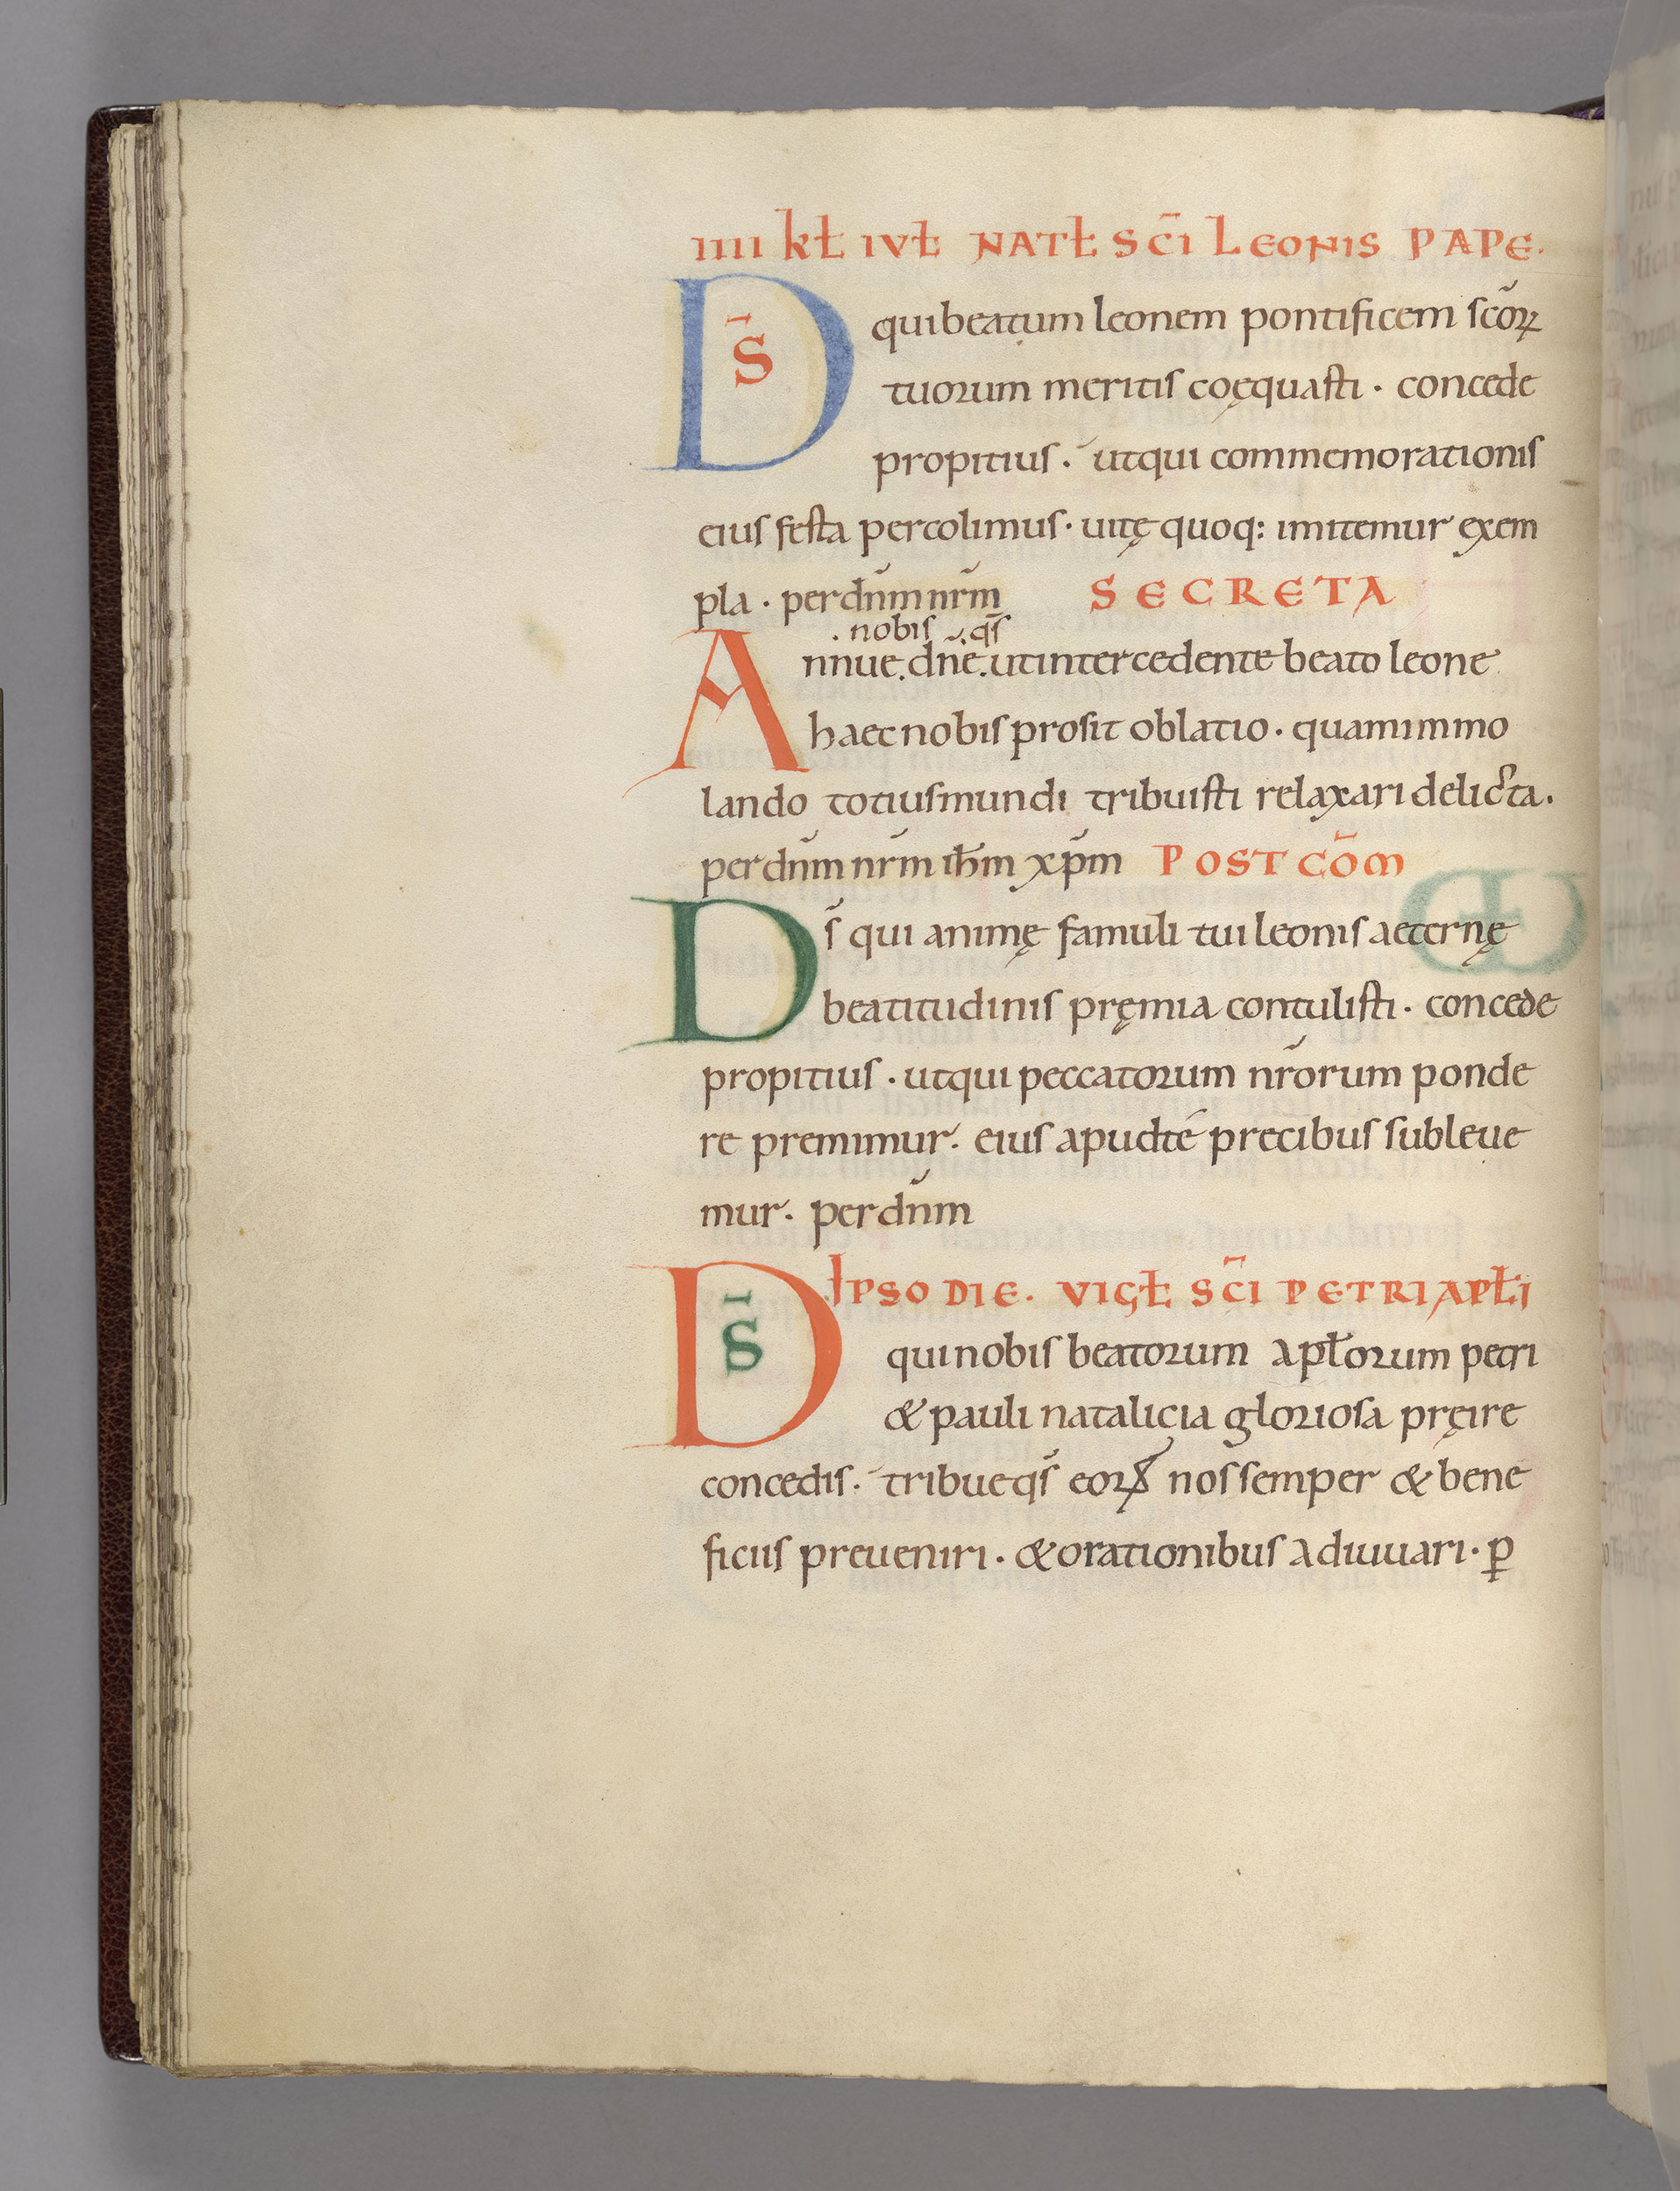 IIII kł IVł NATł SC̄I LEONIS PAPE.
DS̄ qui beatum leonem pontificem sc̄oꝝ
tuorum meritis coęquasti · concede
propitius · ut qui commemorationis
eius festa percolimus · uitę quoq: imitemur exem
pla · per dn̄m nr̄m SECRETA
. nobis .. qs̄
Annue . dn̄e . ut intercedente beato leone
haec nobis prosit oblatio · quam immo
lando totius mundi tribuisti relaxari delicta .
per dn̄m nr̄m ih̄m xp̄m POST CŌM
Ds̄ qui animę famuli tui leonis aeternę
beatitudinis pręmia contulisti · concede
propitius · ut qui peccatorum nr̄orum ponde
re premimur . eius apud té precibus subleue
mur . per dn̄m
IPSO DIE . VIGł SC̄I PETRI APłI
DS̄ qui nobis beatorum apłorum petri
& pauli natalicia gloriosa pręire
concedis . tribue qs̄ eoꝝ nos semper & bene
ficiis preueniri . & orationibus adiuuari · ꝑ